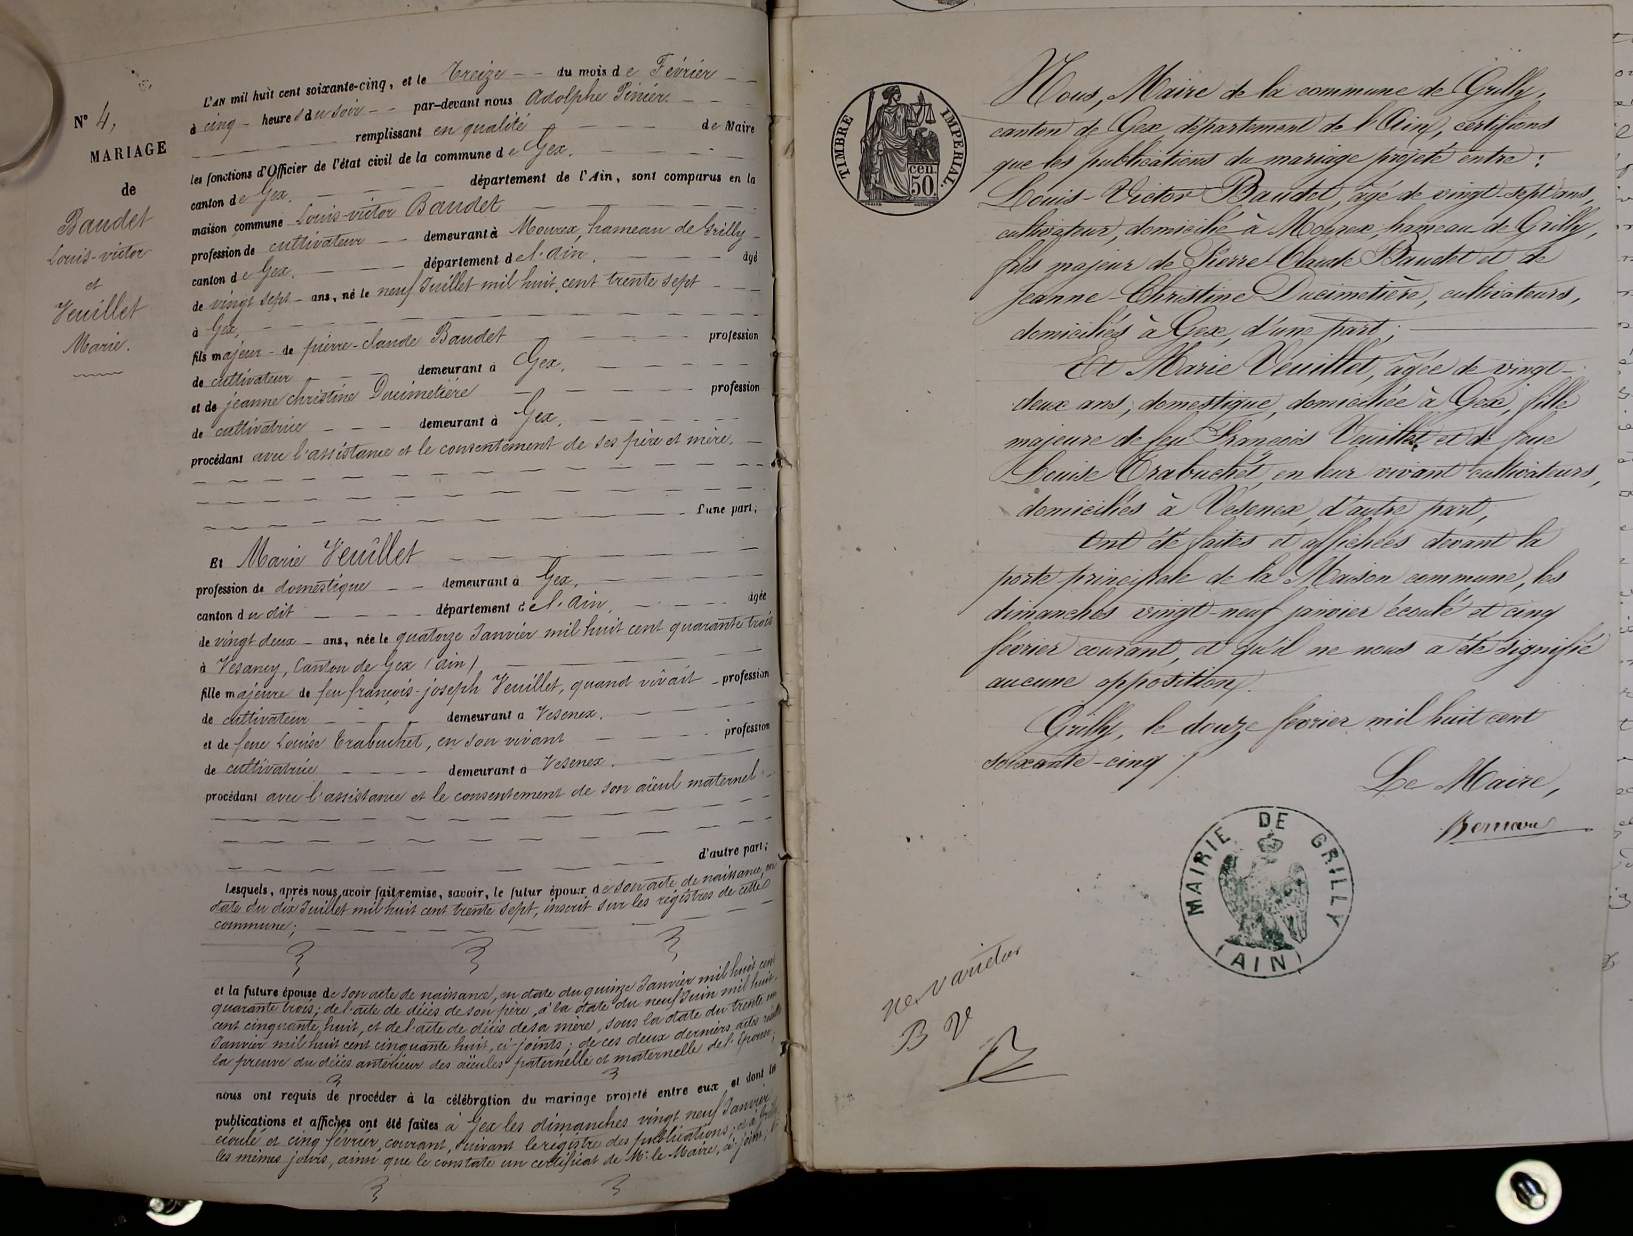 N° 4,
MARIAGE
de
Baudet
Louis-victor
et
Veuillet
Marie.
L'AN mil huit cent soixante-cinq, et le treize du mois de Février
à cinq heures du soir par-devant nous Adolphe
remplissant en qualité de Maire
les fonctions d'Officier de l'état civil de la commune de Gex.
canton de Gex. département de l'Ain, sont comparus en la
maison commune Louis-victor Baudet
profession de cultivateur demeurant à Mourex, hameau de Grilly
canton de Gex. département de l'Ain. âgé
de vingt sept ans, né le neuf Juillet mil huit cent trente sept
à Gex,
fils majeur de pierre-claude Baudet profession
de cultivateur demeurant à Gex.
et de jeanne christine Ducimetière profession
de cultivatrice demeurant à Gex.
procédant avec l'assistance et le consentement de ses père et mère.
l'une part;
Et Marie Veuillet
profession de domestique demeurant à Gex.
canton du dit département de l'Ain. âgée
de vingt deux ans, née le quatorze Janvier mil huit cent quarante trois
à Vesancy, Canton de Gex (ain)
fille majeure de feu françois-joseph Veuillet, quand vivait profession
de cultivateur demeurant à Vesenex.
et de feue Louise Trabuchet, en son vivant profession
de cultivatrice demeurant à Vesenex.
procédant avec l'assistance et le consentement de son aïeul maternel
d'autre part;
Lesquels, après nous avoir fait remise, savoir, le futur époux de son acte de naissance, en
date du dix Juillet mil huit cent trente sept, inscrit sur les régistres de cette
commune;
et la future épouse de son acte de naissance, en date du quinze Janvier mil huit cent
quarante trois; de l'acte de décès de son père, à la date du neuf Juin mil huit
cent cinquante huit, et de l'acte de décès de sa mère, sous la date du trente un
Janvier mil huit cent cinquante huit, ci-joints; de ces deux derniers actes résulte
la preuve du décès antérieur des aïeules paternelle et maternelle de l'épouse;
nous ont requis de procéder à la célébration du mariage projeté entre eux, et dont les
publications et affiches ont été faites à Gex les dimanches vingt neuf Janvier
écoulé et cinq février, courant, suivant le registre des publications; et à Grilly
les mêmes jours, ainsi que le constate un certificat de Mr. le Maire, ci-joint;
TIMBRE IMPERIAL.
50 cen.
Nous, Maire de la commune de Grilly,
canton de Gex, département de l'Ain, certifions
que les publications du mariage projeté entre:
Louis-Victor Baudet, âgé de vingt-sept ans,
cultivateur, domicilié à Mourex, hameau de Grilly,
fils majeur de Pierre Claude Baudet et de
Jeanne-Christine Ducimetière, cultivateurs,
domiciliés à Gex, d'une part;
Et Marie Veuillet, âgée de vingt-
deux ans, domestique, domiciliée à Gex, fille
majeure de feu François Veuillet et de feue
Louise Trabuchet, en leur vivant cultivateurs,
domiciliés à Vesenex, d'autre part,
Ont été faites et affichées devant la
porte principale de la Maison commune, les
dimanches vingt-neuf janvier écoulé et cinq
février courant, et qu'il ne nous a été signifié
aucune opposition.
Grilly, le douze février mil huit cent
soixante-cinq /.
Le Maire,
MAIRIE DE GRILLY
(AIN)
ne varietur
B V